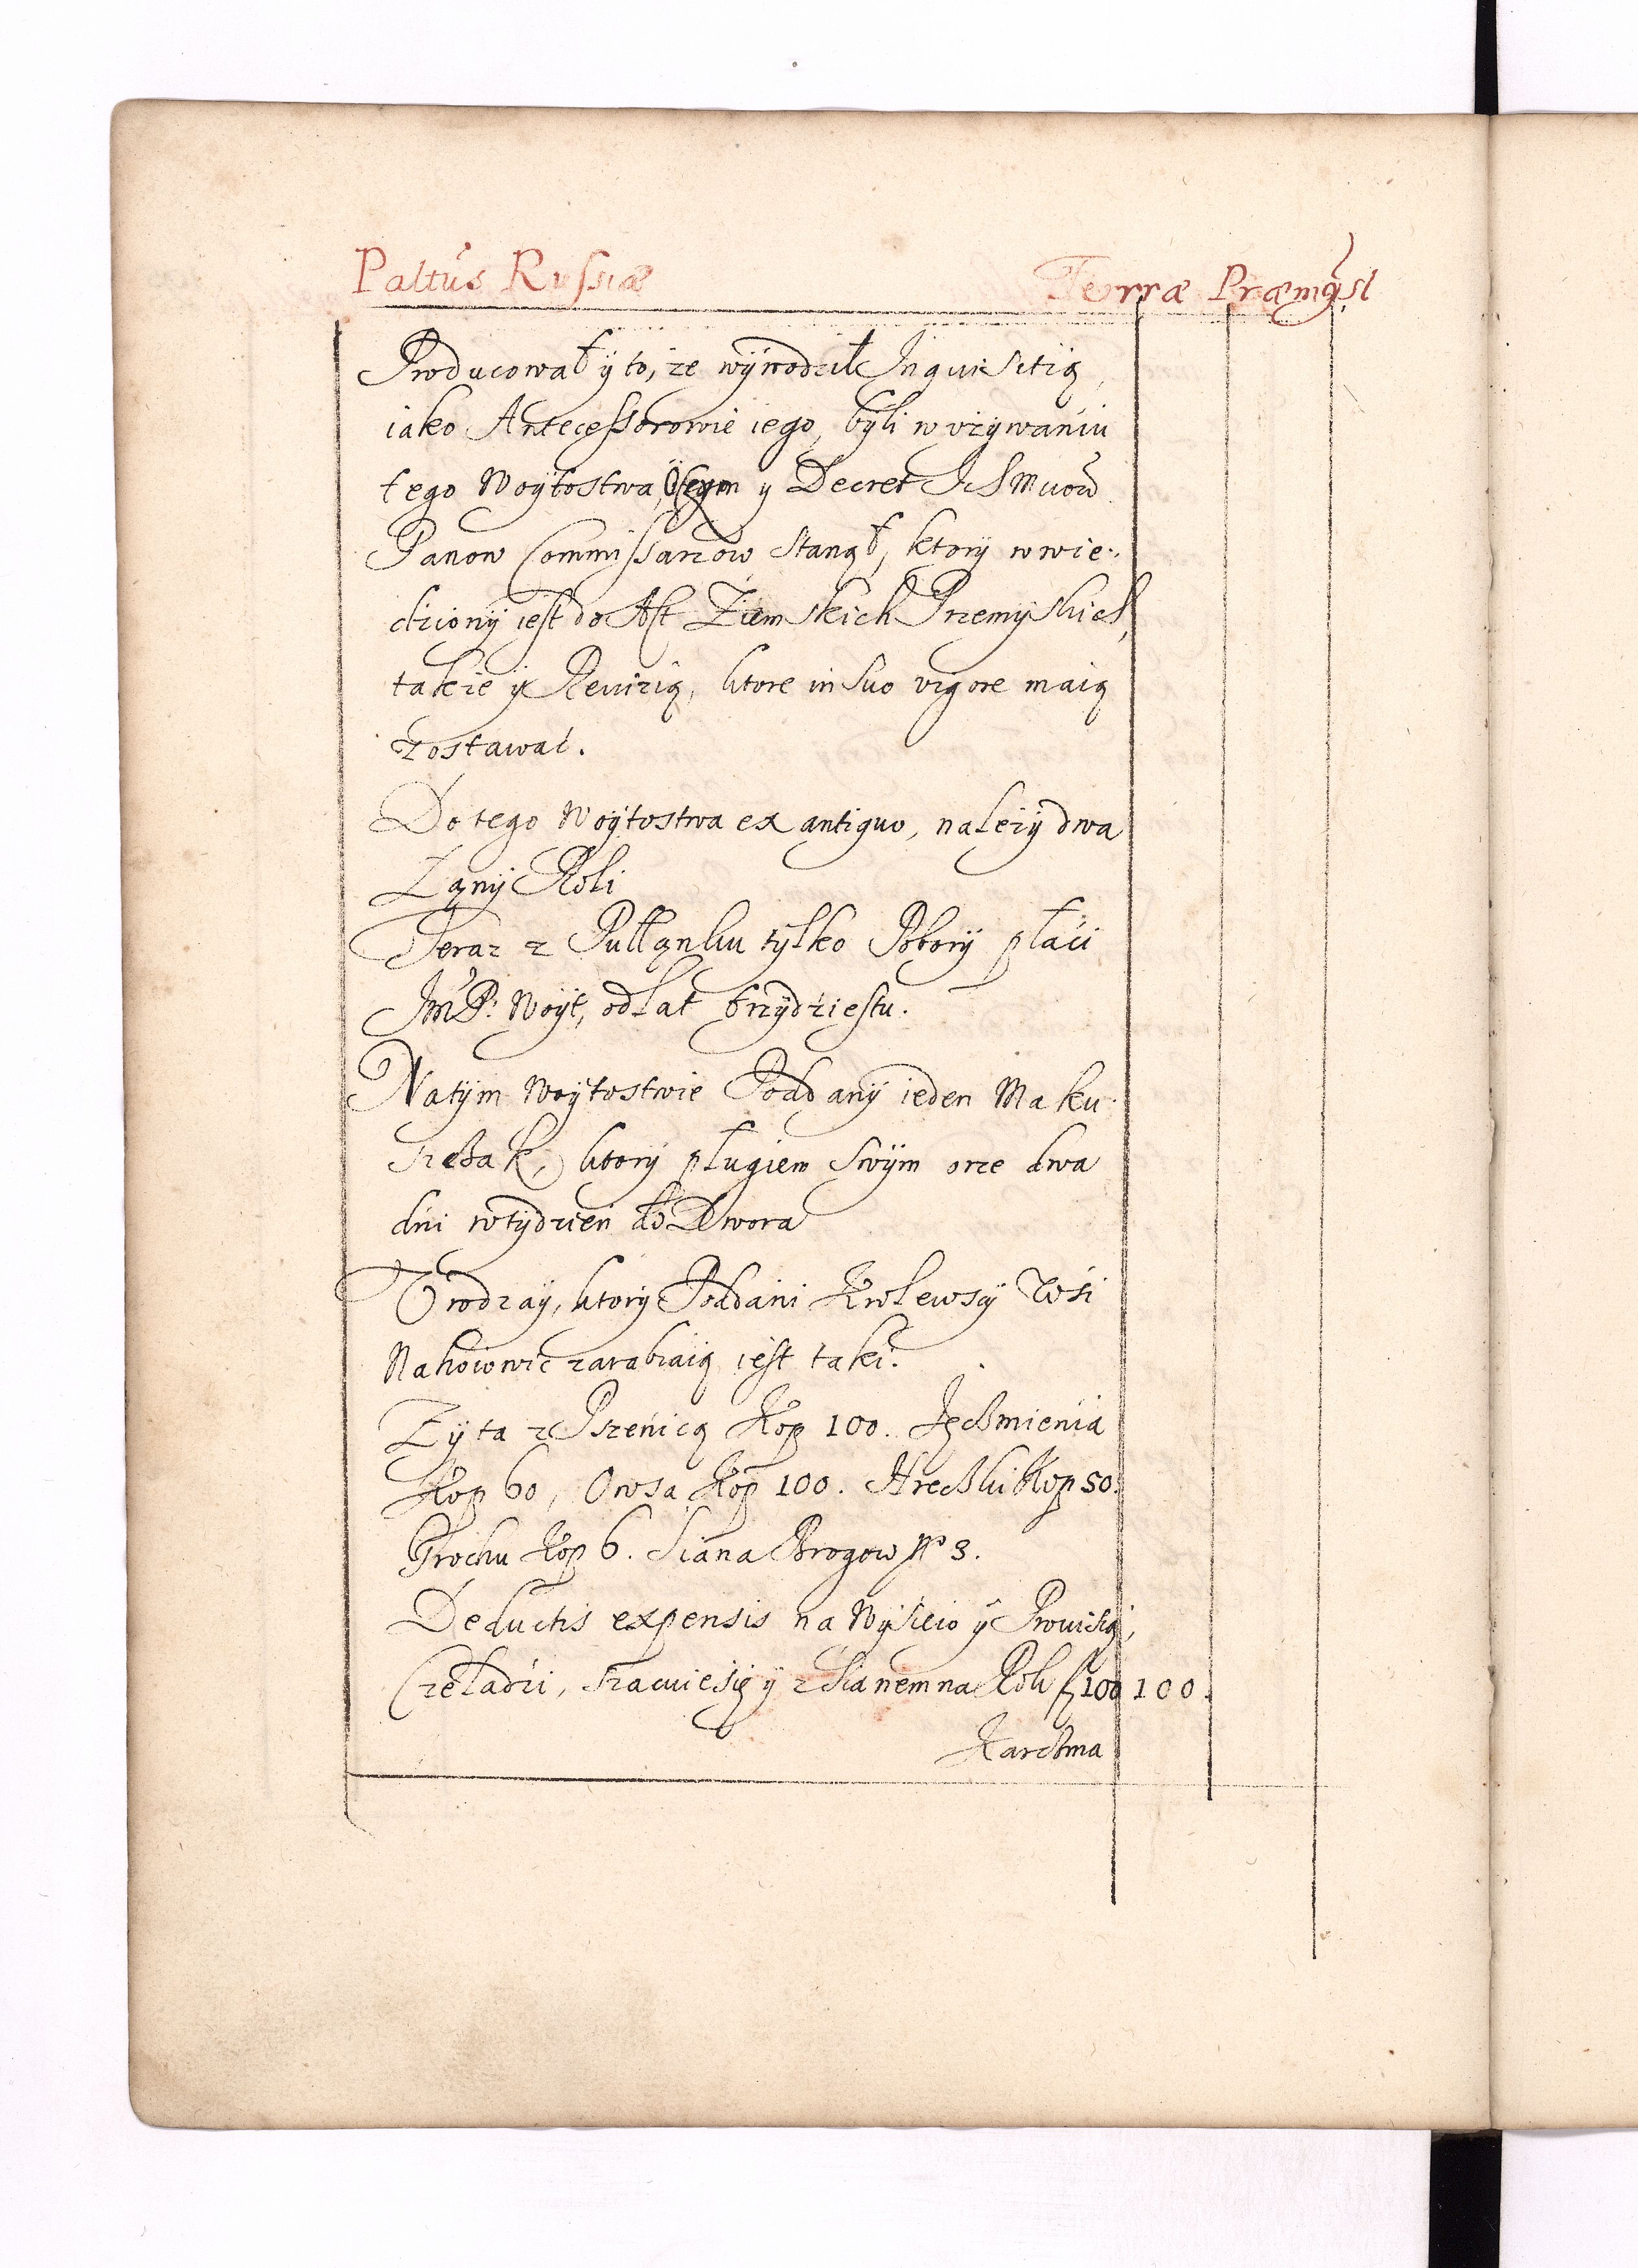 Paltus Russiæ Terræ Præmysl
Producował y to, że wywodził Inquisitią,
iako Antecessorowie iego, byli w vżywaniu
tego Woytostwa, y Decret Ich Mciow
Panow Commissarzow stanął, ktory wwie-
dziony iest do Act Ziemskich Przemyskich,
także y Rewizią, ktore in suo vigore maią
zostawać.
Do tego Woytostwa ex antiquo, należy dwa
Łany Roli
Teraz z Pułłanku tylko Pobory płaci
JmP: Woyt, od lat trzydziestu.
Na tym Woytostwie Poddany ieden Maku
szczak, ktory pługiem swym orze dwa
dni w tydzień do Dwora
Vrodzay, ktory Poddani Krolewscy Wsi
Nahoiowic zarabiaią iest taki.
Zyta z Pszenicą Kop 100. Jęczmienia
Kop 60, Owsa Kop 100. Hreczki Kop 50.
Grochu Kop 6. Siana Brogow No 3.
Deductis expensis na Wysiew y Prowisią,
Czeladzi, szacuie się y z Sianem na Roku fl 100 100.
Karczma